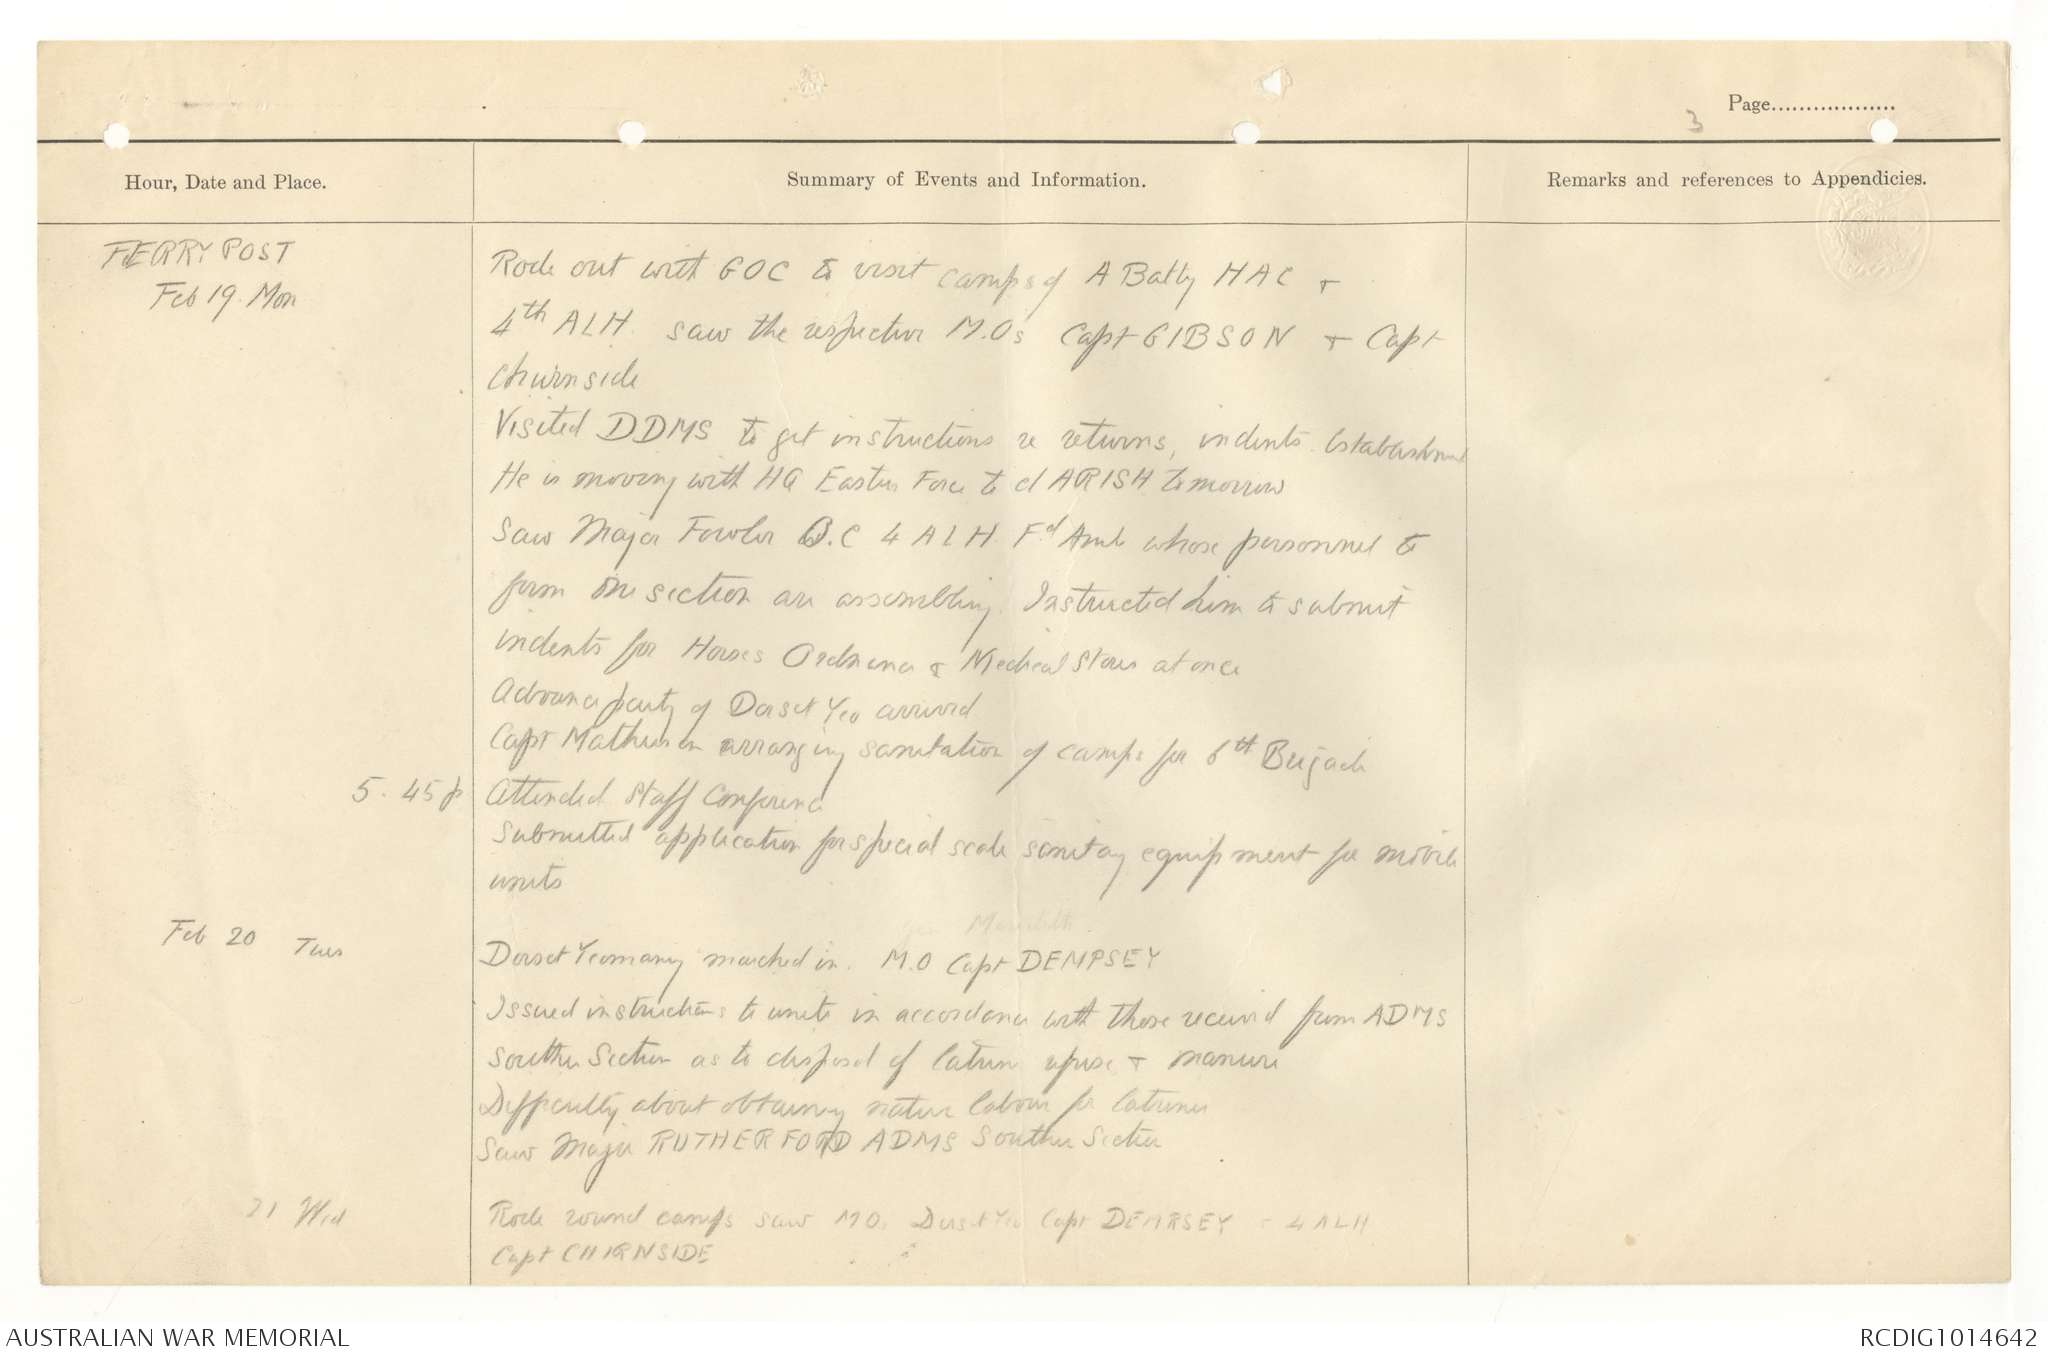 Page..................
3
Hour, Date and Place.
Summary of Events and Information.
Remarks and references to Appendicies.
FERRY POST
Feb 19. Mon
Rode out with GOC to visit camps of A Batty HAC +
4th ALH. saw the respective M.Os Capt GIBSON + Capt
Chirnside
Visited DDMS to get instructions re returns, indents. Establishment
He is moving with HQ Eastern Force to el ARISH tomorrow
Saw Major Fowler O.C 4 ALH. Fd Amb whose personnel to
form one section are assembling. Instructed him to submit
indents for Horses Ordnance & Medical Stores at once
Advance party of Dorset Yeo arrived
Capt Mathieson arranging sanitation of camps for 6th Brigade
5. 45 p
Attended Staff Conference
Submitted application for special scale sanitary equipment for mobile
units
Feb 20 Tues
Dorset Yeomanry marched in. M.O Capt DEMPSEY
Issued instructions to units in accordance with those received from ADMS
Southern Section as to disposal of latrine refuse + manure
Difficulty about obtaining native labour for latrines
Saw Major RUTHERFORD ADMS Southern Section
21 Wed
Rode round camps saw MOs Dorset Yeo Capt DEMPSEY + 4 ALH
Capt CHIRNSIDE
AUSTRALIAN WAR MEMORIAL
RCDIG1014642